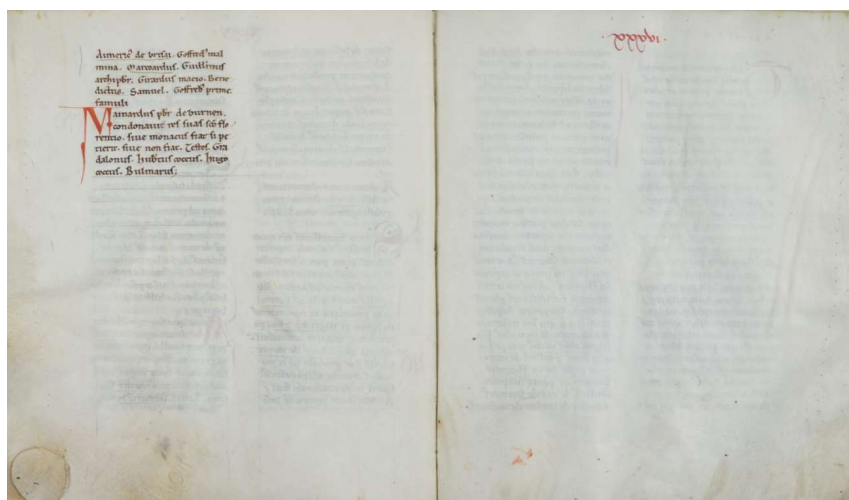 Aimeric⁹ de brisu. Goffred⁹ mal
mina. Marcoardus. Guillmus
archipbr. Girardus macio. Bene
dictus. Samuel. Goffred⁹
famuli
Mainardus pbr de burnen.
condonauit res suas sco flo
rencio. siue monacus fiat si pe
tierit. siue non fiat. Testes. Gra
dalonus. hubtus cocus. hugo
cocus. Bulmarus;